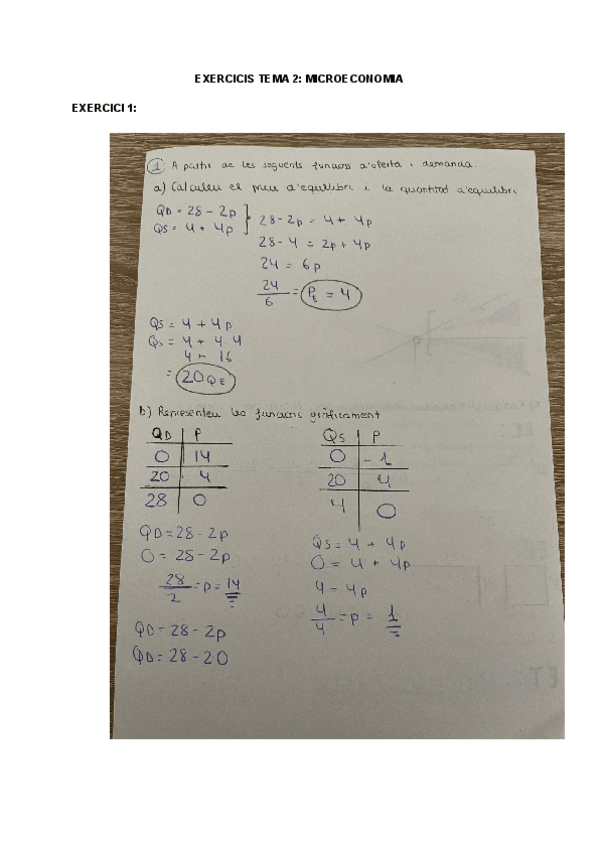 EXERCICIS TEMA 2: MICROECONOMIA
EXERCICI 1:
1 A partir de les seguents funcions d'oferta i demanda
a) Calculeu el preu d'equilibri i la quantitat d'equilibri
QD = 28 - 2p
QS = 4 + 4p
28 - 2p = 4 + 4p
28 - 4 = 2p + 4p
24 = 6p
24/6 = PE = 4
QS = 4 + 4p
Qs = 4 + 4·4
4 + 16
= 20 QE
b) Representeu les funcions gràficament
QD | P
0 | 14
20 | 4
28 | 0
QS | P
0 | -1
20 | 4
4 | 0
QD = 28 - 2p
0 = 28 - 2p
28/2 = p = 14
QD = 28 - 2p
QD = 28 - 20
QS = 4 + 4p
0 = 4 + 4p
4 - 4p
4/4 = p = 1